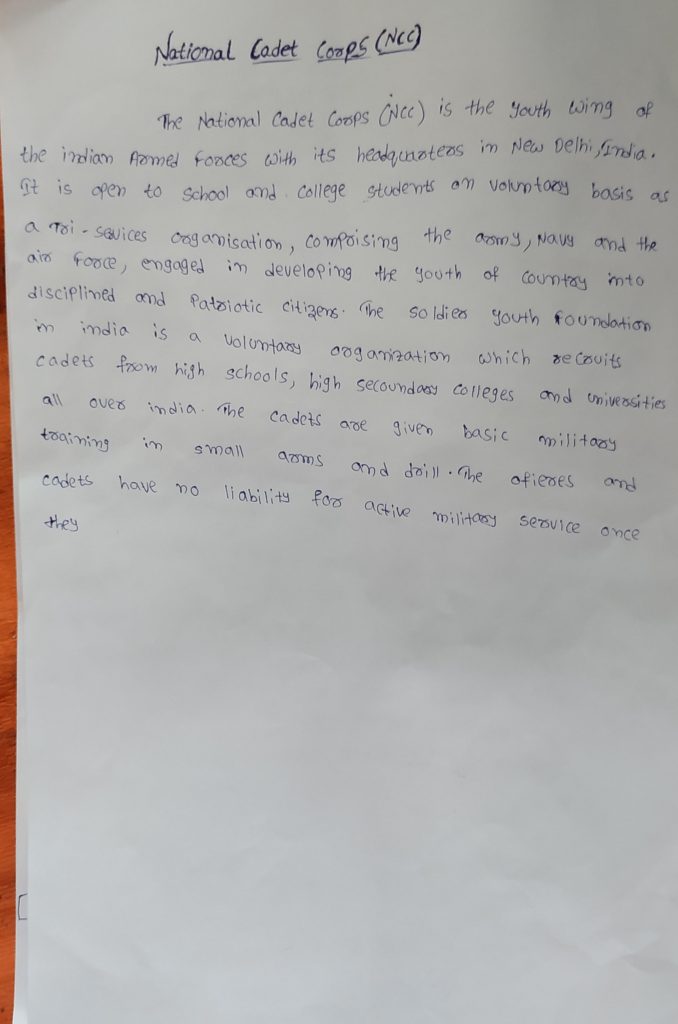 National Cadet Corps (NCC)
The National Cadet Corps (NCC) is the youth wing of
the indian Armed Forces with its headquarters in New Delhi, India.
It is open to school and college students on voluntary basis as
a Tri-sevices organisation, comprising the army, Navy and the
air force, engaged in developing the youth of country into
disciplined and Patriotic citizens. The soldier youth foundation
in india is a voluntary organization which recruits
cadets from high schools, high secoundary colleges and universities
all over india. The cadets are given basic military
training in small arms and drill. The ofieres and
cadets have no liability for active military service once
they